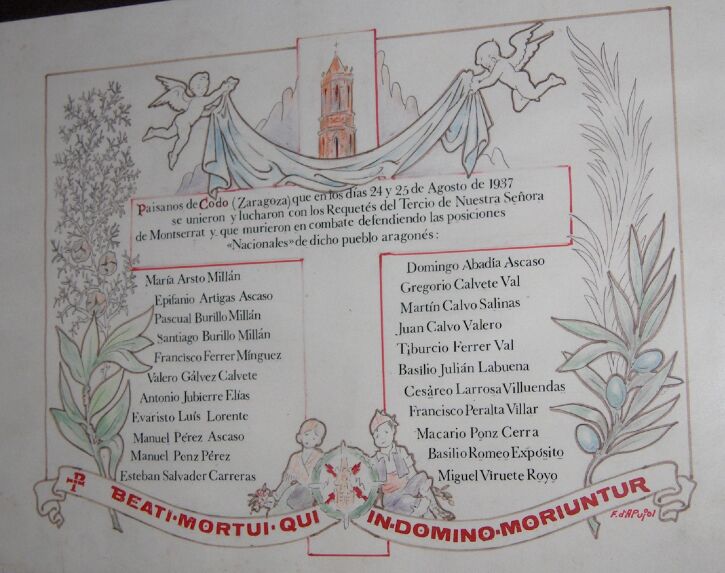 Paisanos de Codo (Zaragoza) que en los días 24 y 25 de Agosto de 1937
se unieron y lucharon con los Requetés del Tercio de Nuestra Señora
de Montserrat y que murieron en combate defendiendo las posiciones
«Nacionales» de dicho pueblo aragonés:
María Arsto Millán
Epifanio Artigas Ascaso
Pascual Burillo Millán
Santiago Burillo Millán
Francisco Ferrer Mínguez
Valero Gálvez Calvete
Antonio Jubierre Elías
Evaristo Luís Lorente
Manuel Pérez Ascaso
Manuel Penz Pérez
Esteban Salvader Carreras
Domingo Abadía Ascaso
Gregorio Calvete Val
Martín Calvo Salinas
Juan Calvo Valero
Tiburcio Ferrer Val
Basilio Julián Labuena
Cesàreo Larrosa Villuendas
Francisco Peralta Villar
Macario Ponz Cerra
Basilio Romeo Expósito
Miguel Viruete Royo
BEATI·MORTUI·QUI IN·DOMINO·MORIUNTUR
F. d'A Pujol